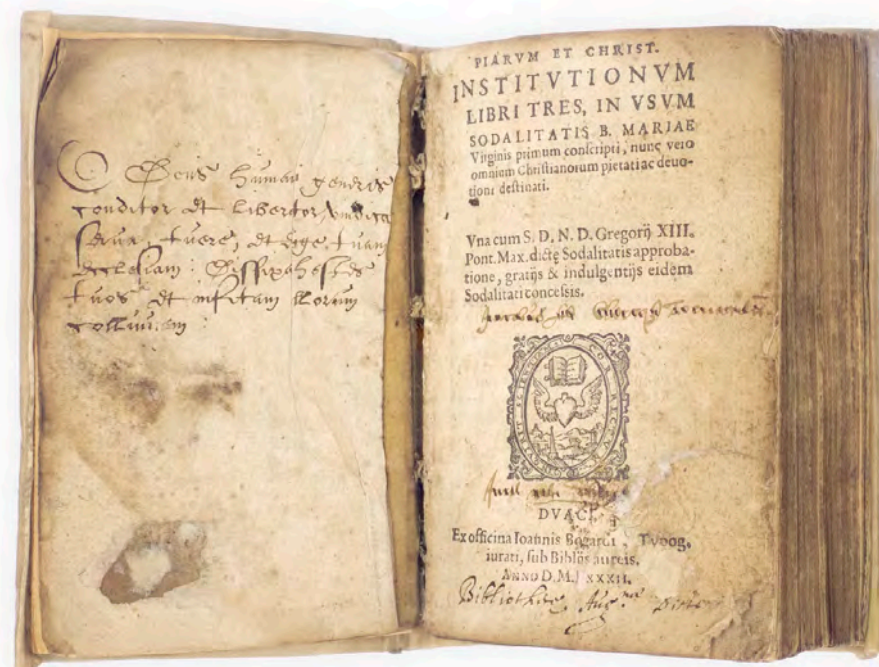 O Deus humani generis
conditor et libertor, vindica
serua, tuere, et rege tuam
Ecclesiam: Dissipa hostes
tuos et infitam illorum
colluuiem:
PIARVM ET CHRIST.
INSTITVTIONVM
LIBRI TRES, IN VSVM
SODALITATIS B. MARIAE
Virginis primum conscripti, nunc vero
omnium Christianorum pietati ac deuo-
tioni destinati.
Vna cum S. D. N. D. Gregorij XIII.
Pont. Max. dictę Sodalitatis approba-
tione, gratijs & indulgentijs eidem
Sodalitati concessis.
COR RECTVM INQVIRIT SCIENTIAM
DVACI,
Ex officina Ioannis Bogardi, Typog.
iurati, sub Biblijs aureis.
ANNO D. M. LXXXII.
Bibliothecę Aug.